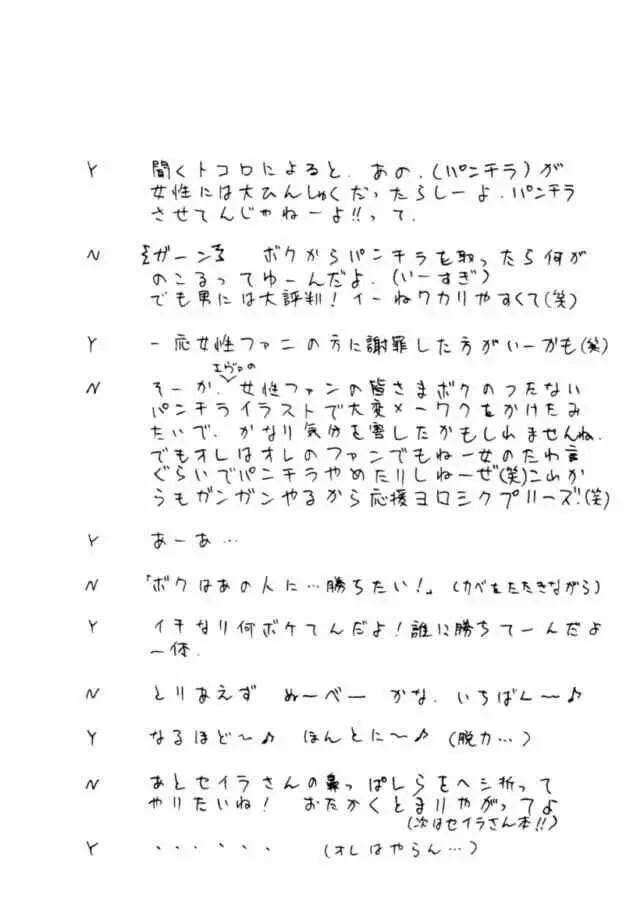 Y 聞くトコロによると、あの、(パンチラ)が
女性には大ひんしゅくだったらしーよ、パンチラ
させてんじゃねーよ!!って、
N ガーン ボクからパンチラを取ったら何が
のこるってゆーんだよ、(いーすぎ)
でも男には大評判!イーねワカリやすくて(笑)
Y 一応女性ファンの方に謝罪した方がいーかも(笑)
エヴァの
N そーか、女性ファンの皆さまボクのつたない
パンチライラストで大変メーワクをかけたみ
たいで、かなり気分を害したかもしれませんね、
でもオレはオレのファンでもねー女のたわ言
ぐらいでパンチラやめたりしねーぜ(笑)これか
らもガンガンやるから応援ヨロシクプリーズ!(笑)
Y あーあ…
N 「ボクはあの人に…勝ちたい!」(カベをたたきながら)
Y イキナリ何ボケてんだよ!誰に勝ちてーんだよ
一体、
N とりあえず ぬ〜べ〜 かな、いちばん〜♪
Y なるほど〜♪ ほんとに〜♪ (脱力…)
N あとセイラさんの鼻っぱしらをヘシ折って
やりたいね! おたかくとまりやがってよ
(次はセイラさん本!!)
Y ・・・・・・ (オレはやらん…)